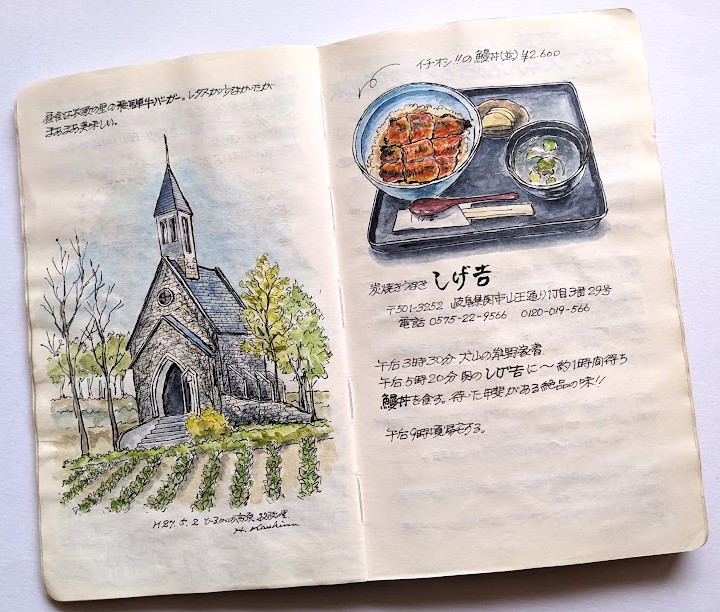 昼食は牧歌の里の飛騨牛バーガー。レタスが少なかったが
まあまあ美味しい。
H27.5.2 ひるがの高原 牧歌の里
イチオシ!!の鰻丼(並) ¥2,600
炭焼きうなぎ しげ吉
〒501-3252 岐阜県関市山王通り1丁目3番29号
電話 0575-22-9566 0120-019-566
午后3時30分 犬山の
午后5時20分 関のしげ吉に〜約1時間待ち
鰻丼を食す。待った甲斐がある絶品の味!!
午后9時頃帰宅する。